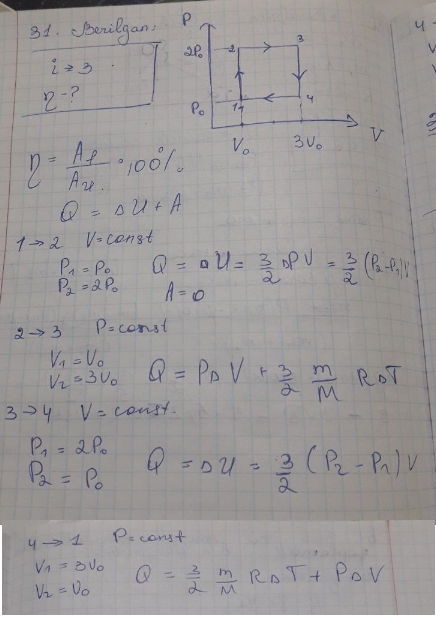 31. Berilgan:
i → 3
η - ?
P
2P₀ 2 3
P₀ 1 4
V₀ 3V₀ V
η = Af / Au · 100%
Q = ΔU + A
1→2 V=const
P₁ = P₀ Q = ΔU = 3/2 ΔPV = 3/2 (P₂-P₁)V
P₂ = 2P₀ A = 0
2→3 P=const
V₁ = V₀
V₂ = 3V₀ Q = PΔV + 3/2 m/M RΔT
3→4 V = const.
P₁ = 2P₀
P₂ = P₀ Q = ΔU = 3/2 (P₂ - P₁) V
4→1 P=const
V₁ = 3V₀
V₂ = V₀ Q = 3/2 m/M RΔT + PΔV